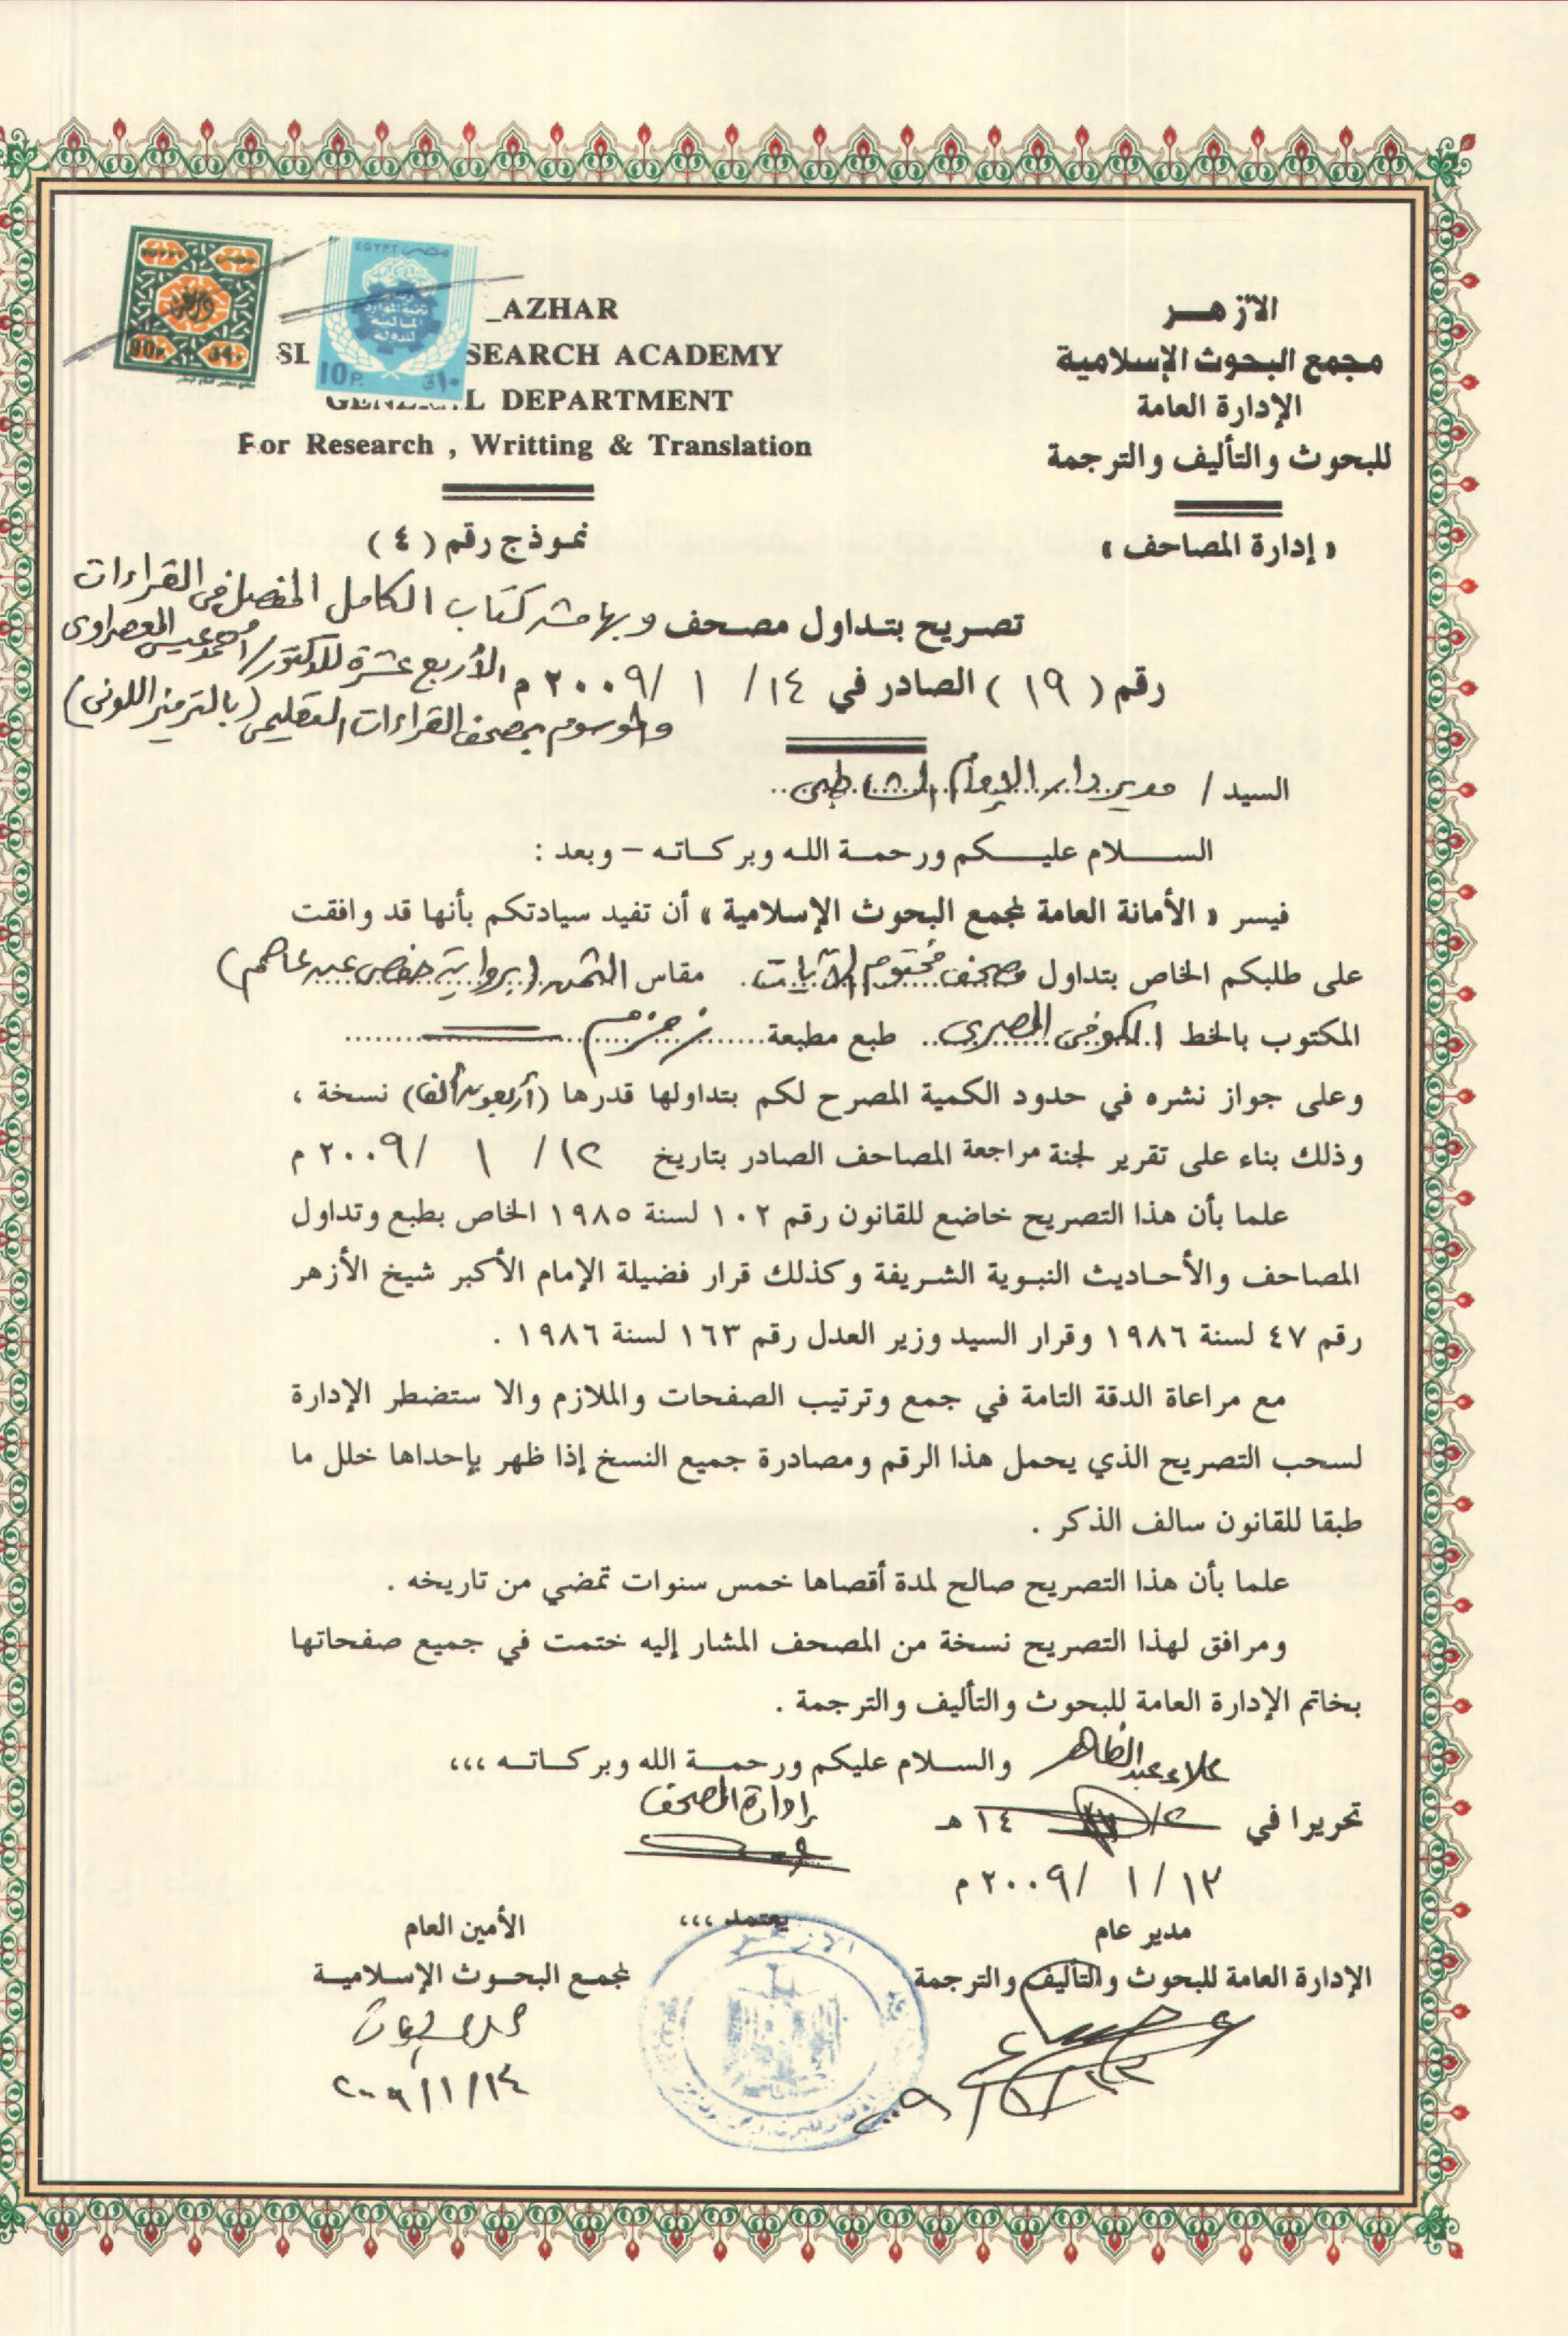 الأزهر
مجمع البحوث الإسلامية
الإدارة العامة
للبحوث والتأليف والترجمة
« إدارة المصاحف »
AZHAR
SEARCH ACADEMY
DEPARTMENT
For Research , Writting & Translation
EGYPT مصر
10 P.
نموذج رقم ( ٤ )
تصريح بتداول مصحف وبهامشه كتاب الكامل المفصل في القراءات
الأربع عشرة للدكتور/ أحمد عيسى المعصراوى
رقم ( ١٩ ) الصادر في ١٤ / ١ / ٢٠٠٩ م
والموسوم بمصحف القراءات التعليمى (بالترميز اللونى)
السيد / مدير دار الإمام الشاطبى
السلام عليكم ورحمة الله وبركاته – وبعد :
فيسر « الأمانة العامة لمجمع البحوث الإسلامية » أن تفيد سيادتكم بأنها قد وافقت
على طلبكم الخاص بتداول مصحف مختوم الآيات مقاس الثمن (برواية حفص عن عاصم)
المكتوب بالخط الكوفى المصرى طبع مطبعة زمزم
وعلى جواز نشره في حدود الكمية المصرح لكم بتداولها قدرها (أربعون ألفا) نسخة ،
وذلك بناء على تقرير لجنة مراجعة المصاحف الصادر بتاريخ ١٢ / ١ / ٢٠٠٩ م
علما بأن هذا التصريح خاضع للقانون رقم ١٠٢ لسنة ١٩٨٥ الخاص بطبع وتداول
المصاحف والأحاديث النبوية الشريفة وكذلك قرار فضيلة الإمام الأكبر شيخ الأزهر
رقم ٤٧ لسنة ١٩٨٦ وقرار السيد وزير العدل رقم ١٦٣ لسنة ١٩٨٦ .
مع مراعاة الدقة التامة في جمع وترتيب الصفحات والملازم والا ستضطر الإدارة
لسحب التصريح الذي يحمل هذا الرقم ومصادرة جميع النسخ إذا ظهر بإحداها خلل ما
طبقا للقانون سالف الذكر .
علما بأن هذا التصريح صالح لمدة أقصاها خمس سنوات تمضي من تاريخه .
ومرافق لهذا التصريح نسخة من المصحف المشار إليه ختمت في جميع صفحاتها
بخاتم الإدارة العامة للبحوث والتأليف والترجمة .
والسلام عليكم ورحمة الله وبركاته ،،،
علاء عبد الظاهر
إدارة المصحف
تحريرا في / ١٤ هـ
١٣ / ١ / ٢٠٠٩ م
يعتمد ،،،
مدير عام
الإدارة العامة للبحوث والتأليف والترجمة
الأمين العام
لمجمع البحوث الإسلامية
٢٠٠٩/١/١٤
الأزهر